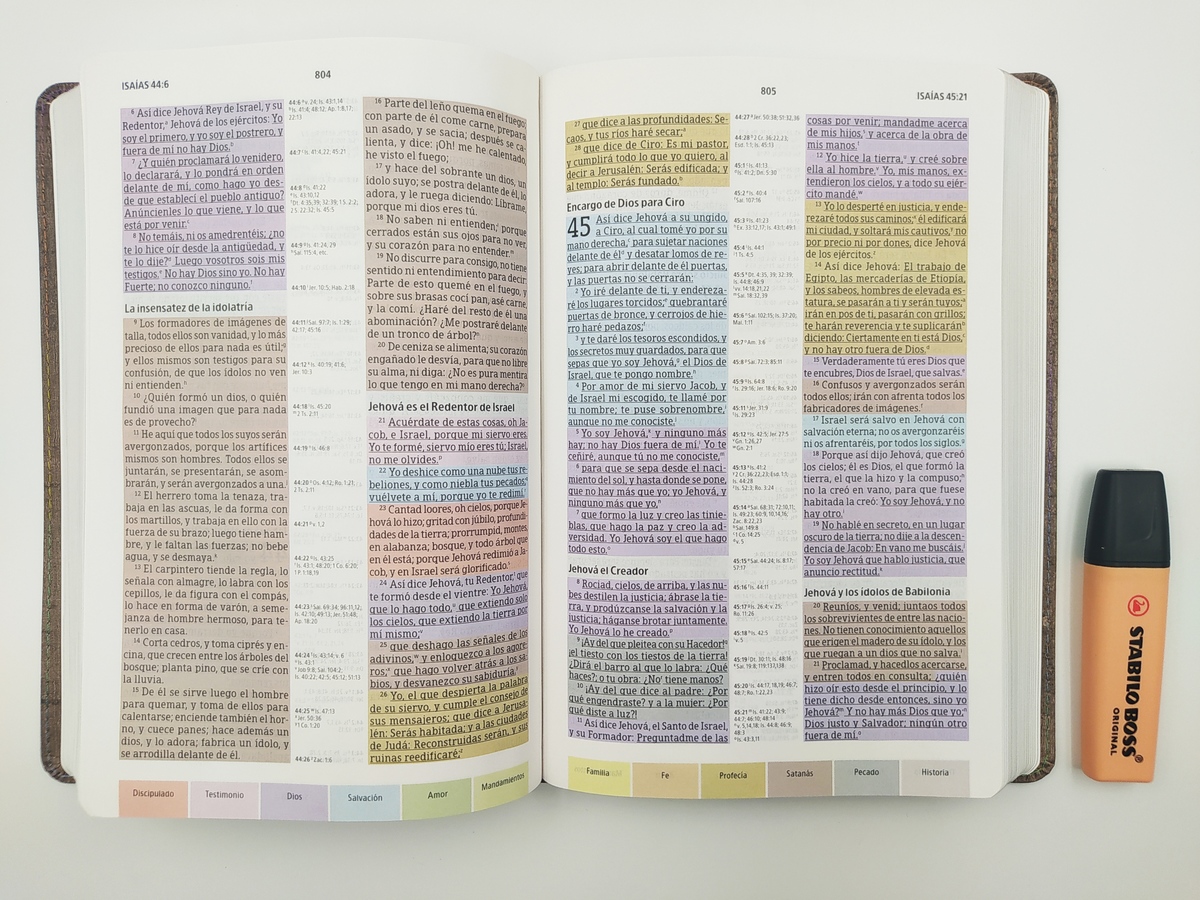 ISAÍAS 44:6
804
6 Así dice Jehová Rey de Israel, y su
Redentor, Jehová de los ejércitos: Yo
soy el primero, y yo soy el postrero, y
fuera de mí no hay Dios.
7 ¿Y quién proclamará lo venidero,
lo declarará, y lo pondrá en orden
delante de mí, como hago yo des-
de que establecí el pueblo antiguo?
Anúncienles lo que viene, y lo que
está por venir.
8 No temáis, ni os amedrentéis; ¿no
te lo hice oír desde la antigüedad, y
te lo dije? Luego vosotros sois mis
testigos. No hay Dios sino yo. No hay
Fuerte; no conozco ninguno.
La insensatez de la idolatría
9 Los formadores de imágenes de
talla, todos ellos son vanidad, y lo más
precioso de ellos para nada es útil;
y ellos mismos son testigos para su
confusión, de que los ídolos no ven
ni entienden.
10 ¿Quién formó un dios, o quién
fundió una imagen que para nada
es de provecho?
11 He aquí que todos los suyos serán
avergonzados, porque los artífices
mismos son hombres. Todos ellos se
juntarán, se presentarán, se asom-
brarán, y serán avergonzados a una.
12 El herrero toma la tenaza, tra-
baja en las ascuas, le da forma con
los martillos, y trabaja en ello con la
fuerza de su brazo; luego tiene ham-
bre, y le faltan las fuerzas; no bebe
agua, y se desmaya.
13 El carpintero tiende la regla, lo
señala con almagre, lo labra con los
cepillos, le da figura con el compás,
lo hace en forma de varón, a seme-
janza de hombre hermoso, para te-
nerlo en casa.
14 Corta cedros, y toma ciprés y en-
cina, que crecen entre los árboles del
bosque; planta pino, que se críe con
la lluvia.
15 De él se sirve luego el hombre
para quemar, y toma de ellos para
calentarse; enciende también el hor-
no, y cuece panes; hace además un
dios, y lo adora; fabrica un ídolo, y
se arrodilla delante de él.
16 Parte del leño quema en el fuego;
con parte de él come carne, prepara
un asado, y se sacia; después se ca-
lienta, y dice: ¡Oh! me he calentado,
he visto el fuego;
17 y hace del sobrante un dios, un
ídolo suyo; se postra delante de él, lo
adora, y le ruega diciendo: Líbrame,
porque mi dios eres tú.
18 No saben ni entienden; porque
cerrados están sus ojos para no ver,
y su corazón para no entender.
19 No discurre para consigo, no tiene
sentido ni entendimiento para decir:
Parte de esto quemé en el fuego, y
sobre sus brasas cocí pan, asé carne,
y la comí. ¿Haré del resto de él una
abominación? ¿Me postraré delante
de un tronco de árbol?
20 De ceniza se alimenta; su corazón
engañado le desvía, para que no libre
su alma, ni diga: ¿No es pura mentira
lo que tengo en mi mano derecha?
Jehová es el Redentor de Israel
21 Acuérdate de estas cosas, oh Ja-
cob, e Israel, porque mi siervo eres.
Yo te formé, siervo mío eres tú; Israel,
no me olvides.
22 Yo deshice como una nube tus re-
beliones, y como niebla tus pecados;
vuélvete a mí, porque yo te redimí.
23 Cantad loores, oh cielos, porque Je-
hová lo hizo; gritad con júbilo, profundi-
dades de la tierra; prorrumpid, montes,
en alabanza; bosque, y todo árbol que
en él está; porque Jehová redimió a Ja-
cob, y en Israel será glorificado.
24 Así dice Jehová, tu Redentor, que
te formó desde el vientre: Yo Jehová,
que lo hago todo, que extiendo solo
los cielos, que extiendo la tierra por
mí mismo;
25 que deshago las señales de los
adivinos, y enloquezco a los agore-
ros; que hago volver atrás a los sa-
bios, y desvanezco su sabiduría.
26 Yo, el que despierta la palabra
de su siervo, y cumple el consejo de
sus mensajeros; que dice a Jerusa-
lén: Serás habitada; y a las ciudades
de Judá: Reconstruidas serán, y sus
ruinas reedificaré;
Discipulado
Testimonio
Dios
Salvación
Amor
Mandamientos
805
ISAÍAS 45:21
27 que dice a las profundidades: Se-
caos, y tus ríos haré secar;
28 que dice de Ciro: Es mi pastor,
y cumplirá todo lo que yo quiero, al
decir a Jerusalén: Serás edificada; y
al templo: Serás fundado.
Encargo de Dios para Ciro
45 Así dice Jehová a su ungido,
a Ciro, al cual tomé yo por su
mano derecha, para sujetar naciones
delante de él y desatar lomos de re-
yes; para abrir delante de él puertas,
y las puertas no se cerrarán:
2 Yo iré delante de ti, y endereza-
ré los lugares torcidos; quebrantaré
puertas de bronce, y cerrojos de hie-
rro haré pedazos;
3 y te daré los tesoros escondidos, y
los secretos muy guardados, para que
sepas que yo soy Jehová, el Dios de
Israel, que te pongo nombre.
4 Por amor de mi siervo Jacob, y
de Israel mi escogido, te llamé por
tu nombre; te puse sobrenombre,
aunque no me conociste.
5 Yo soy Jehová, y ninguno más
hay; no hay Dios fuera de mí. Yo te
ceñiré, aunque tú no me conociste,
6 para que se sepa desde el naci-
miento del sol, y hasta donde se pone,
que no hay más que yo; yo Jehová, y
ninguno más que yo,
7 que formo la luz y creo las tinie-
blas, que hago la paz y creo la ad-
versidad. Yo Jehová soy el que hago
todo esto.
Jehová el Creador
8 Rociad, cielos, de arriba, y las nu-
bes destilen la justicia; ábrase la tie-
rra, y prodúzcanse la salvación y la
justicia; háganse brotar juntamente.
Yo Jehová lo he creado.
9 ¡Ay del que pleitea con su Hacedor!
¡el tiesto con los tiestos de la tierra!
¿Dirá el barro al que lo labra: ¿Qué
haces?; o tu obra: ¿No tiene manos?
10 ¡Ay del que dice al padre: ¿Por
qué engendraste? y a la mujer: ¿Por
qué diste a luz?!
11 Así dice Jehová, el Santo de Israel,
y su Formador: Preguntadme de las
cosas por venir; mandadme acerca
de mis hijos, y acerca de la obra de
mis manos.
12 Yo hice la tierra, y creé sobre
ella al hombre. Yo, mis manos, ex-
tendieron los cielos, y a todo su ejér-
cito mandé.
13 Yo lo desperté en justicia, y ende-
rezaré todos sus caminos; él edificará
mi ciudad, y soltará mis cautivos, no
por precio ni por dones, dice Jehová
de los ejércitos.
14 Así dice Jehová: El trabajo de
Egipto, las mercaderías de Etiopía,
y los sabeos, hombres de elevada es-
tatura, se pasarán a ti y serán tuyos;
irán en pos de ti, pasarán con grillos;
te harán reverencia y te suplicarán
diciendo: Ciertamente en ti está Dios,
y no hay otro fuera de Dios.
15 Verdaderamente tú eres Dios que
te encubres, Dios de Israel, que salvas.
16 Confusos y avergonzados serán
todos ellos; irán con afrenta todos los
fabricadores de imágenes.
17 Israel será salvo en Jehová con
salvación eterna; no os avergonzaréis
ni os afrentaréis, por todos los siglos.
18 Porque así dijo Jehová, que creó
los cielos; él es Dios, el que formó la
tierra, el que la hizo y la compuso;
no la creó en vano, para que fuese
habitada la creó: Yo soy Jehová, y no
hay otro.
19 No hablé en secreto, en un lugar
oscuro de la tierra; no dije a la descen-
dencia de Jacob: En vano me buscáis.
Yo soy Jehová que hablo justicia, que
anuncio rectitud.
Jehová y los ídolos de Babilonia
20 Reuníos, y venid; juntaos todos
los sobrevivientes de entre las nacio-
nes. No tienen conocimiento aquellos
que erigen el madero de su ídolo, y los
que ruegan a un dios que no salva.
21 Proclamad, y hacedlos acercarse,
y entren todos en consulta; ¿quién
hizo oír esto desde el principio, y lo
tiene dicho desde entonces, sino yo
Jehová? Y no hay más Dios que yo;
Dios justo y Salvador; ningún otro
fuera de mí.
Familia
Fe
Profecía
Satanás
Pecado
Historia
STABILO BOSS
ORIGINAL